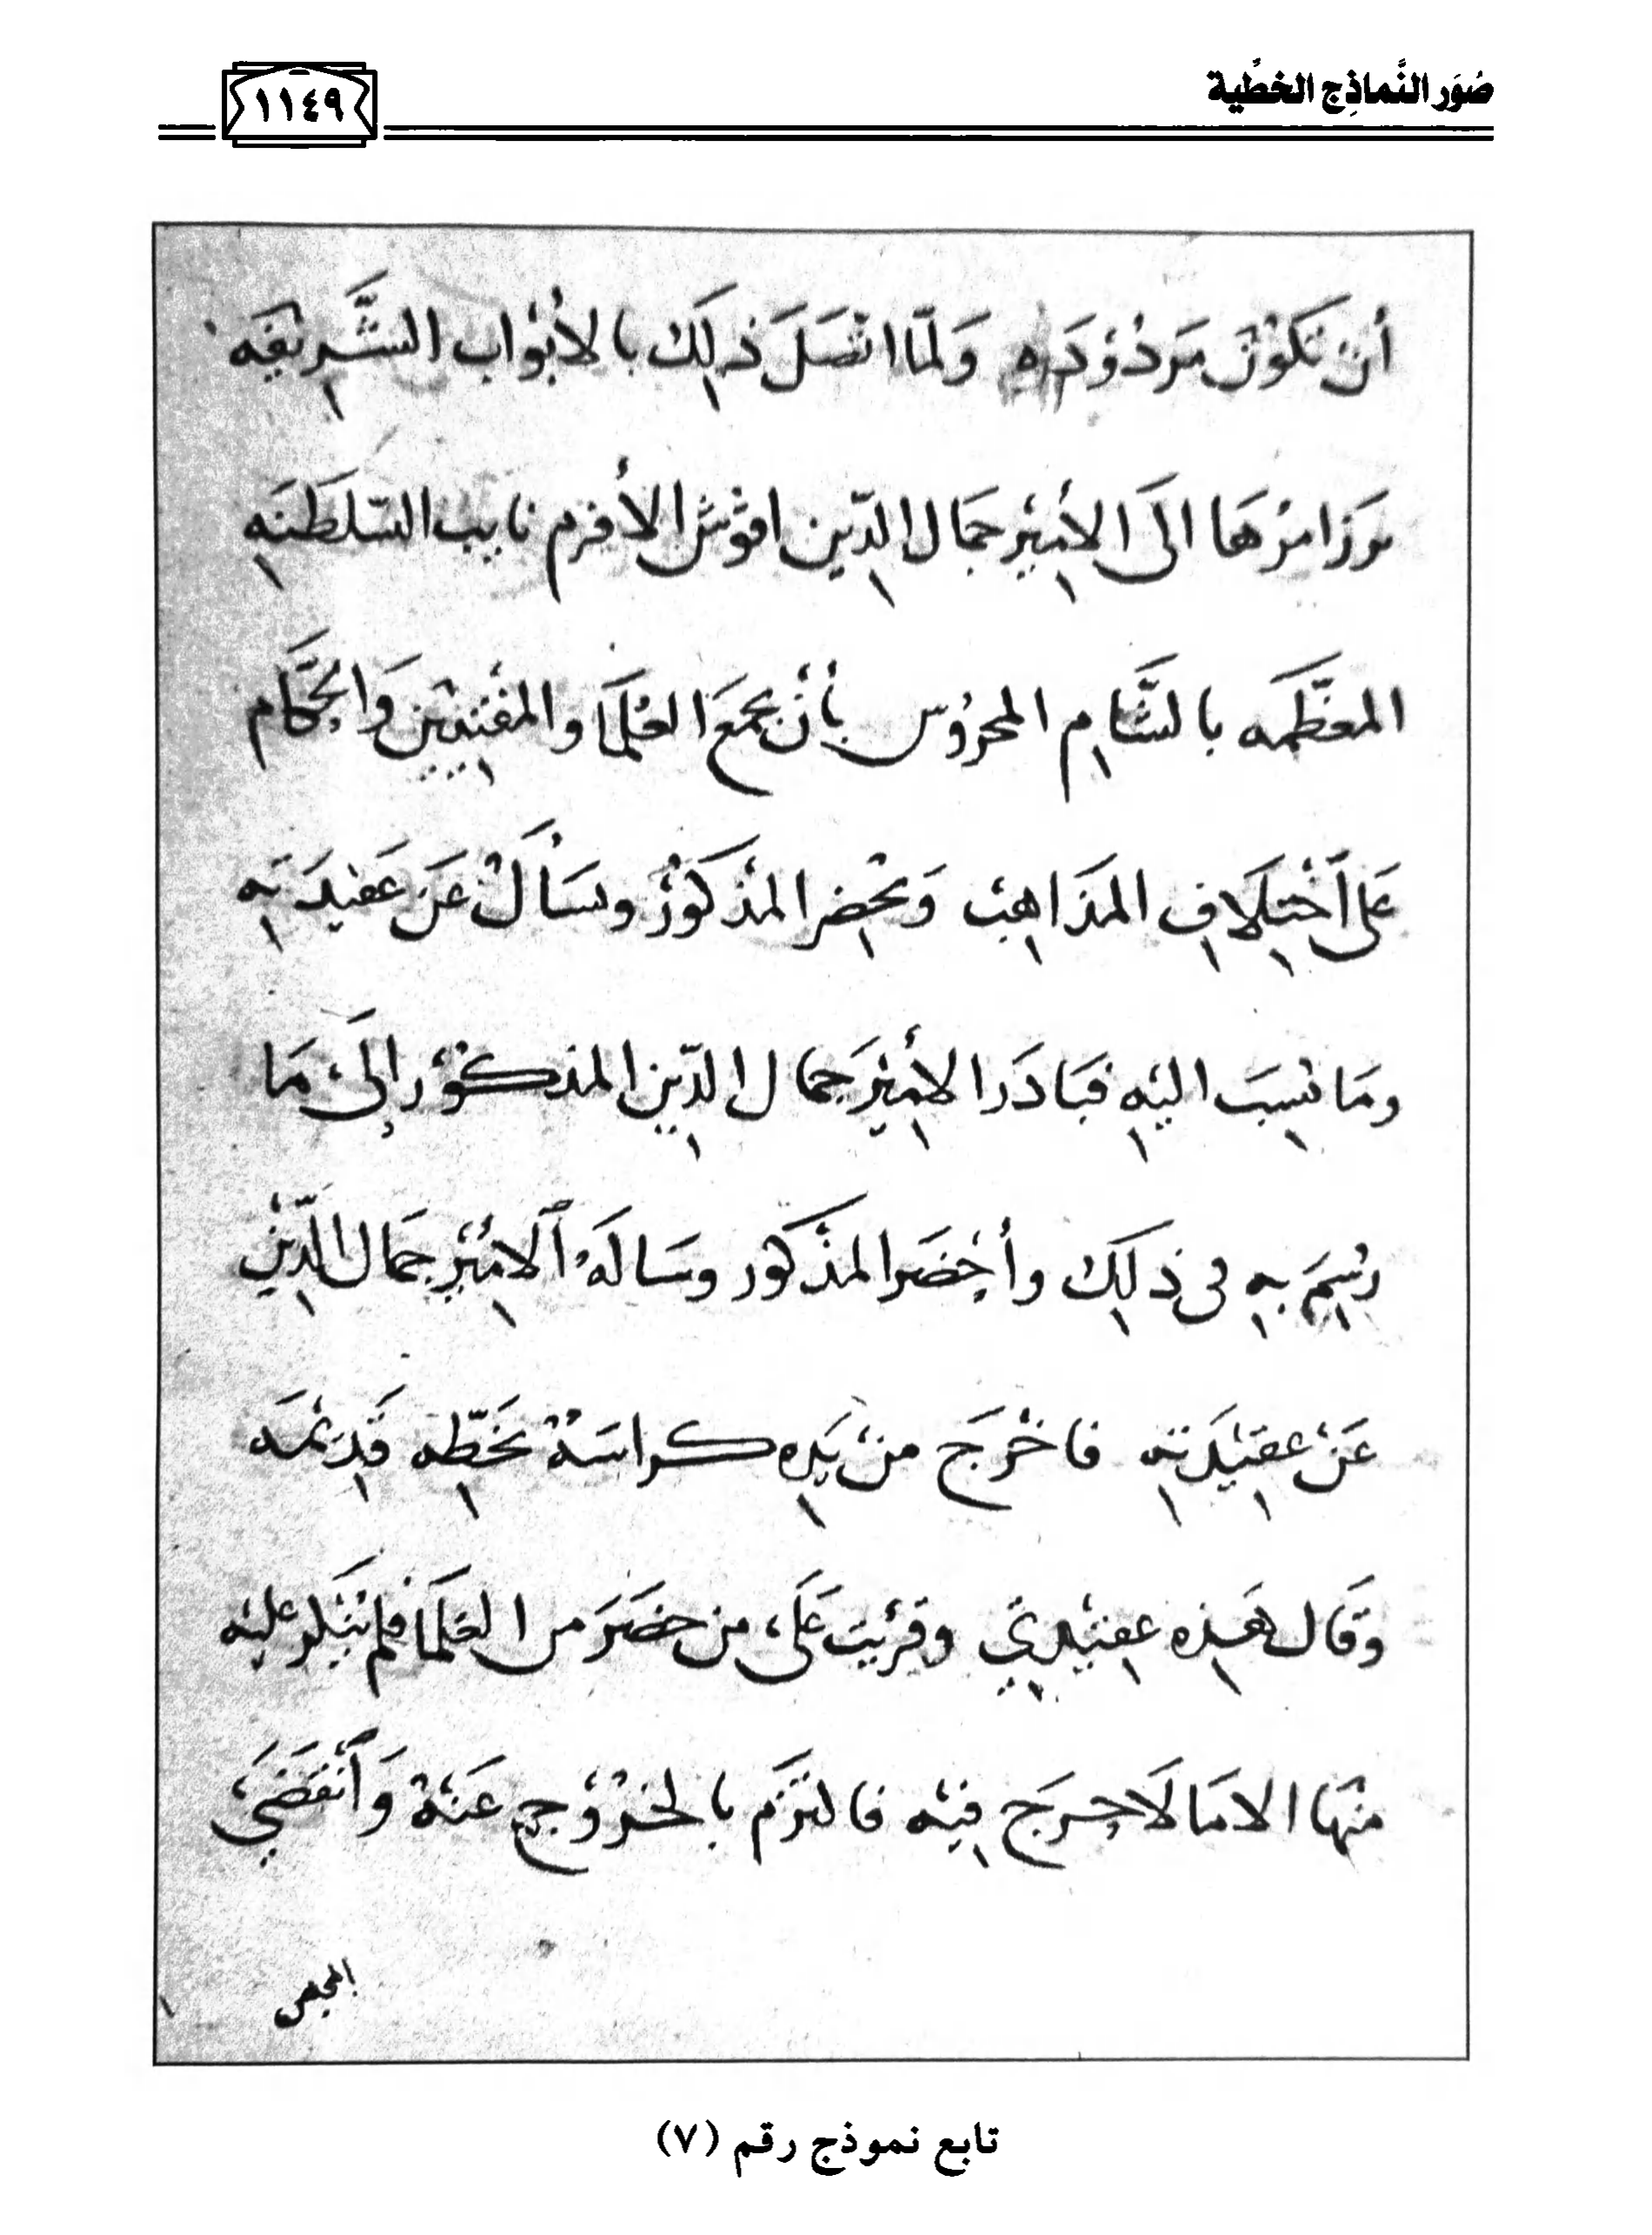 صُوَر النَّماذِج الخطِّية
١١٤٩
أن تكُوْنَ مَردُوْدَه وَلمّا اتّصَلَ ذلِكَ بالأبْوابِ الشَّرِيْفَه
بَرَزَ امرُهَا الَى الأمِيْر جمَال الدِّين اقوش الأفرم نايب السّلطَنَهِ
المعَظّمَه بالشَّامِ المحرُوْس بأن يجمَعَ العُلمَا والمفْتِيِيْنَ وَالحُكّام
عَلى اَخْتِلافِ المذَاهِبْ وَيُحْضِر المذكوُرْ ويسَألْ عَن عَقيدَتهِ
ومَا نسِبَ اليْهِ فبَادَرَ الأمِيْرَ جمال الدِّين المذكوْر إلَىْ مَا
رُسِمَ بهِ فى ذلِكَ وأُحْضِرَ المذْكور وسَالَهُ اَلامِيْر جمَال الدِّيْن
عَنْ عقِيْدَتهِ فاخْرَجَ منْ يَدِه كراسَةْ بخَطّهِ قدِيْمَه
وقَال هَذِه عقِيْدِتي وقرِيْت عَلىْ من حضَرَ من العُلمَا فلم يُنْكر عليْه
منْهَا الا مَا لَا حِرَج فِيْه فالتزَم بالخرُوْج عَنْهْ وَاَنْقَضَىْ
المجلس
تابع نموذج رقم (٧)